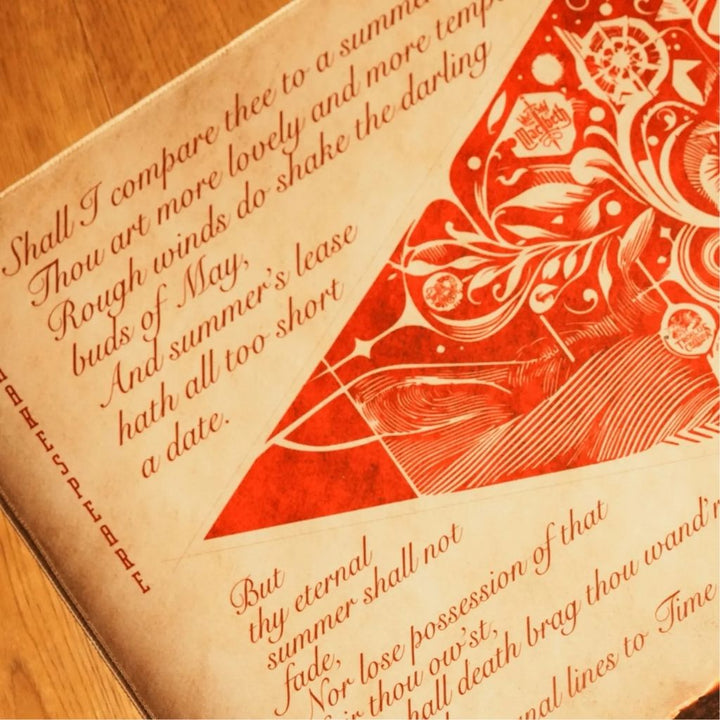 Shall I compare thee to a summe
Thou art more lovely and more temp
Rough winds do shake the darling
buds of May,
And summer's lease
hath all too short
a date.
Macbeth
SHAKESPEARE
But
thy eternal
summer shall not
fade,
Nor lose possession of that
thou ow'st,
hall death brag thou wand'r
nal lines to Time